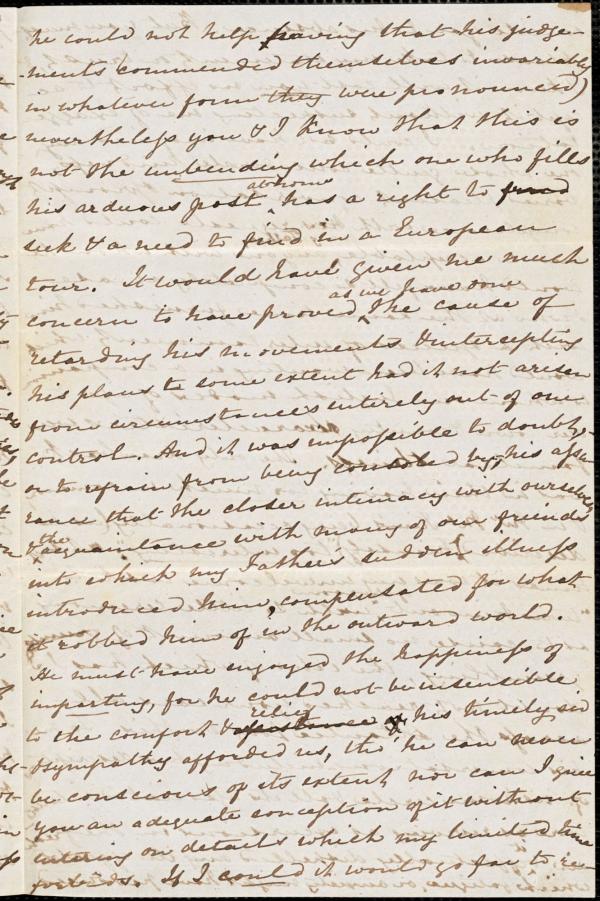 he could not help having that his judge-
ments commended themselves invariably
in whatever form they were pronounced)
nevertheless you & I know that this is
not the unbending which one who fills
his arduous post at home has a right to find
seek & a need to find in a European
tour. It would have given me much
concern to have proved as we have done the cause of
retarding his movements & intercepting
his plans to some extent had it not arisen
from circumstances entirely out of our
control. And it was impossible to doubt,
or to refrain from being consoled by, his assu-
rance that the closer intimacy with ourselves
& the acquaintance with many of our friends
into which my Father's sudden illness
introduced him, compensated for what
it robbed him of in the outward world.
He must have enjoyed the happiness of
imparting, for he could not be insensible
to the comfort & assistance relief his timely aid
& sympathy afforded us, tho' he can never
be conscious of its extent nor can I give
you an adequate conception of it without
entering on details which my limited time
forbids. If I could it would go far to re-